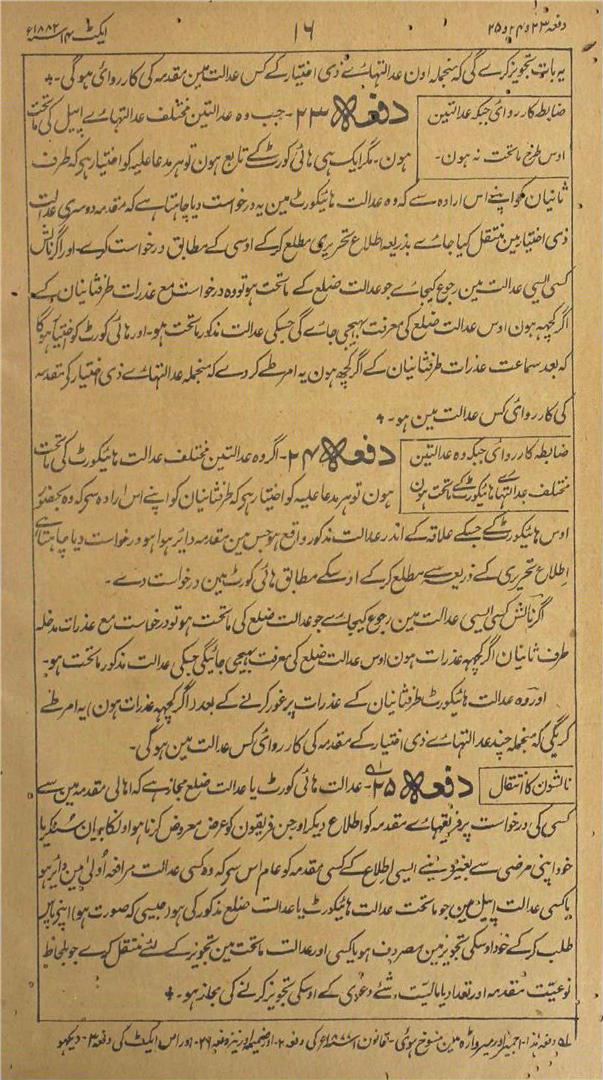 دفعہ ۲۳ و ۲۴ و ۲۵
۱۶
ایکٹ ۱۴ سنہ ۱۸۸۲ع
یہ بات تجویز کرے گی کہ منجملہ اون عدالتہاے ذی اختیار کے کس عدالت مین مقدمہ کی کارروائی ہوگی۔
ضابطہ کارروائی جبکہ عدالتین
اوس طرح ماتحت نہ ہون۔
دفعہ ۲۳۔ جب وہ عدالتین مختلف عدالتہاے اپیل کی ماتحت
ہون۔ مگر ایک ہی ہائی کورٹ کے تابع ہون تو ہر مدعا علیہ کو اختیار ہی کہ طرف
ثانیان کو اپنے اس ارادہ سے کہ وہ عدالت ہائیکورٹ مین یہ درخواست دیا چاہتا ہے کہ مقدمہ دوسری عدالت
ذی اختیار مین منتقل کیا جاے بذریعہ اطلاع تحریری مطلع کرکے اوسی کے مطابق درخواست کرے۔ اور اگر نالش
کسی ایسی عدالت مین رجوع کیجاے جو عدالت ضلع کے ماتحت ہو تو وہ درخواست مع عذرات طرفثانیان کے
اگر کچہہ ہون اوس عدالت ضلع کی معرفت بہیجی جاے گی جسکی عدالت مذکور ماتحت ہو۔ اور ہائی کورٹ کو اختیار ہوگا
کہ بعد سماعت عذرات طرفثانیان کے اگر کچھ ہون یہ امر طے کردے کہ منجملہ عدالتہاے ذی اختیار کے مقدمہ
کی کارروائی کس عدالت مین ہو۔
ضابطہ کارروائی جبکہ وہ عدالتین
مختلف عدالتہاے ہائیکورٹ کے ماتحت ہون
دفعہ ۲۴۔ اگر وہ عدالتین مختلف عدالت ہائیکورٹ کی ماتحت
ہون تو ہر مدعا علیہ کو اختیار ہی کہ طرفثانیان کو اپنے اس ارادہ سے کہ وہ بحضور
اوس ہائیکورٹ کے جسکے علاقہ کے اندر عدالت مذکور واقع ہو جس مین مقدمہ دایر ہوا ہو درخواست دیا چاہتا ہے
اطلاع تحریری کے ذریعہ سے مطلع کرکے اوسکے مطابق ہائی کورٹ مین درخواست دے۔
اگر نالش کسی ایسی عدالت مین رجوع کیجاے جو عدالت ضلع کی ماتحت ہو تو درخواست مع عذرات مدخلہ
طرف ثانیان اگر کچہہ عذرات ہون اوس عدالت ضلع کی معرفت بہیجی جائیگی جسکی عدالت مذکور ماتحت ہو۔
اور وہ عدالت ہائیکورٹ طرفثانیان کے عذرات پر غور کرنے کے بعد (اگر کچہہ عذرات ہون) یہ امر طے
کریگی کہ منجملہ چند عدالتہاے ذی اختیار کے مقدمہ کی کارروائی کس عدالت مین ہوگی۔
نالشون کا انتقال
دفعہ ۲۵۔ عدالت ہائی کورٹ یا عدالت ضلع مجاز ہے کہ اہالی مقدمہ مین سے
کسی کی درخواست پر فریقہاے مقدمہ کو اطلاع دیکر اور جن فریقون کو عرض معروض کرنا ہو اونکا بیان سنکر یا
خود اپنی مرضی سے بغیر دینے ایسی اطلاع کے کسی مقدمہ کو عام اس سے کہ وہ کسی عدالت مرافعہ اولیٰ مین دایر ہو
یا کسی عدالت اپیل مین جو ماتحت عدالت ہائیکورٹ یا عدالت ضلع مذکور کی ہو (جیسی کہ صورت ہو) اپنے پاس
طلب کرکے خود اوسکی تجویز مین مصروف ہو یا کسی اور عدالت ماتحت مین تجویز کے لئے منتقل کرے جو بلحاظ
نوعیت مقدمہ اور تعداد یا مالیت شے دعویٰ کے اوسکی تجویز کرنے کی مجاز ہو۔
دفعہ ہذا اجمیر اور میرواڑہ مین منسوخ ہوئی۔ قانون ۱ سنہ ۱۸۸۸ع کی دفعہ ۲۔ اور ضمیمہ اور نیز دفعہ ۲۶۔ اور اس ایکٹ کی دفعہ ۳۔ دیکہو